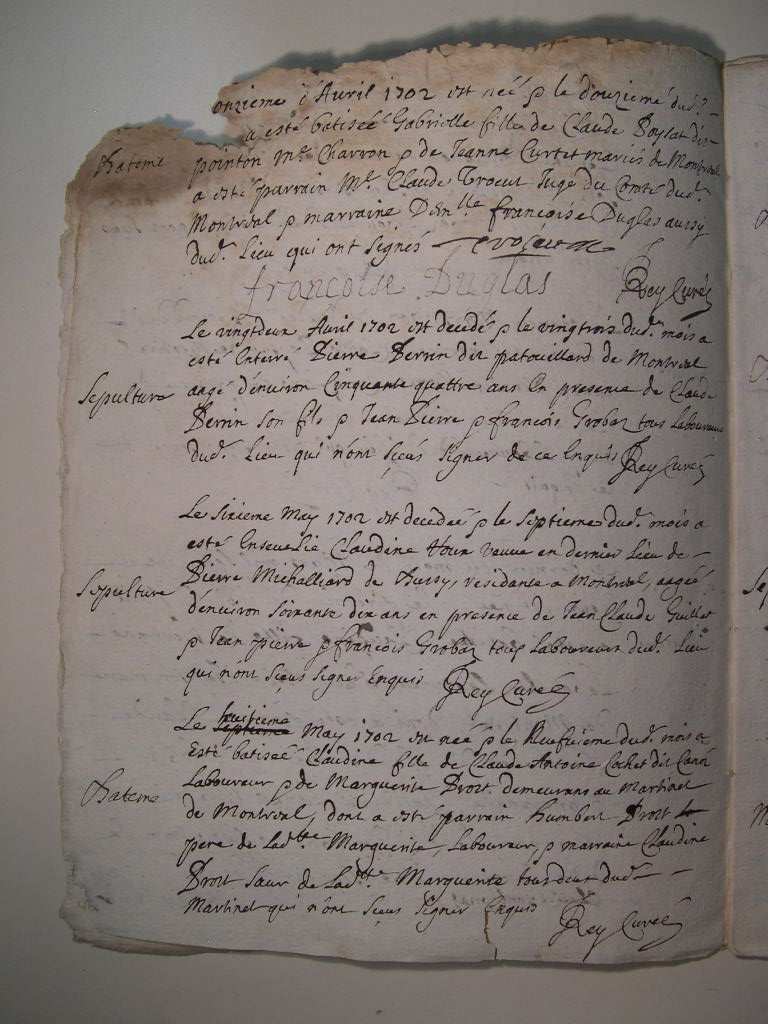 onzieme d'Avril 1702 est neé p le douzieme dud.
a esté batiseé Gabrielle fille de Claude Poysat dit
Bateme
pointon Me. Charron p de Jeanne Curtet mariés de Montreal
a esté parrain Mr. Claude Trocut Juge du Comté dud.
Montreal p marraine Dem.lle francoise Duglas aussy
dud. Lieu qui ont signés
francoise Duglas Rey Curé
Le vingtdeux Avril 1702 est decedé p le vingtrois dud. mois a
esté Enterré Pierre Perrin dit patouillard de Montreal
Sepulture
aagé d'environ Cinquante quattre ans En presence de Claude
Perrin son fils p Jean Pierre p francois Grobaz tous Laboureurs
dud. Lieu qui n'ont sçeus signer de ce Enquis Rey Curé
Le sixieme May 1702 est decedeé p le septieme dud. mois a
esté Enseuelie Claudine veuue en dernier Lieu de
Sepulture
Pierre Michalliard de residante a Montreal, aageé
d'environ soixante dix ans en presence de Jean Claude Guillot
p Jean pierre p francois Grobaz tous Laboureurs dud. Lieu
qui n'ont sçeus signer Enquis Rey Curé
Le huitieme septieme May 1702 est neé p le Neufuieme dud. mois a
Esté batiseé Claudine fille de Claude Antoine Cochet dit
Bateme
Laboureur p de Marguerite Drost demeurans au Martinet
de Montreal, dont a esté parrain humbert Drost le
pere de Lad.tte Marguerite, Laboureur, p marraine Claudine
Drost sœur de Lad.tte Marguerite tous deux dud.
Martinet qui n'ont sçeus signer Enquis
Rey Curé